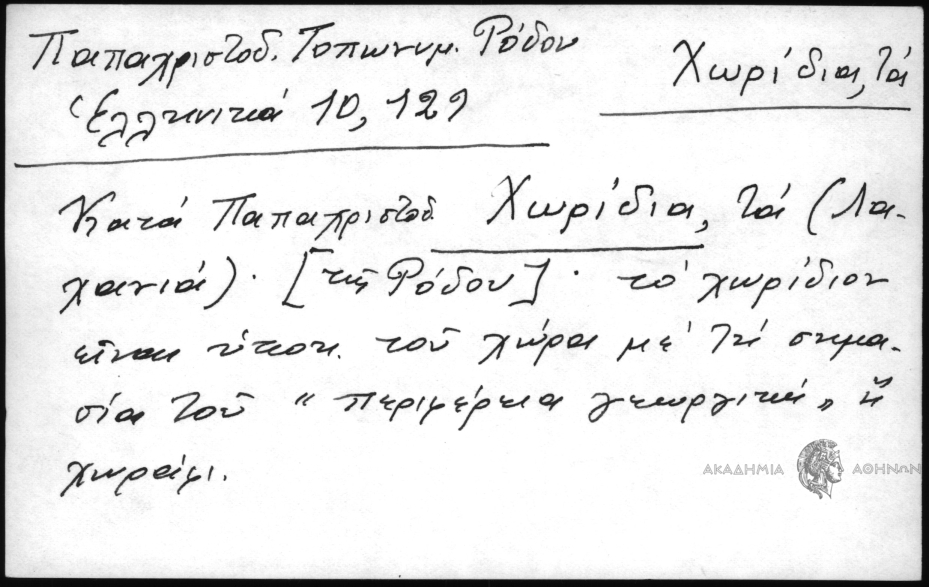 Παπαχριστοδ. Τοπωνυμ. Ρόδου
Χωρίδια, τά
Ἑλληνικά 10, 129
Κατά Παπαχριστοδ. Χωρίδια, τά (Λα-
χανιά)· [τῆς Ρόδου]· τό χωρίδιον
εἶναι ὑποκ. τοῦ χώρα μέ τή σημα-
σία τοῦ "περιφέρεια γεωργική" ἤ
χωράφι.
ΑΚΑΔΗΜΙΑ ΑΘΗΝΩΝ